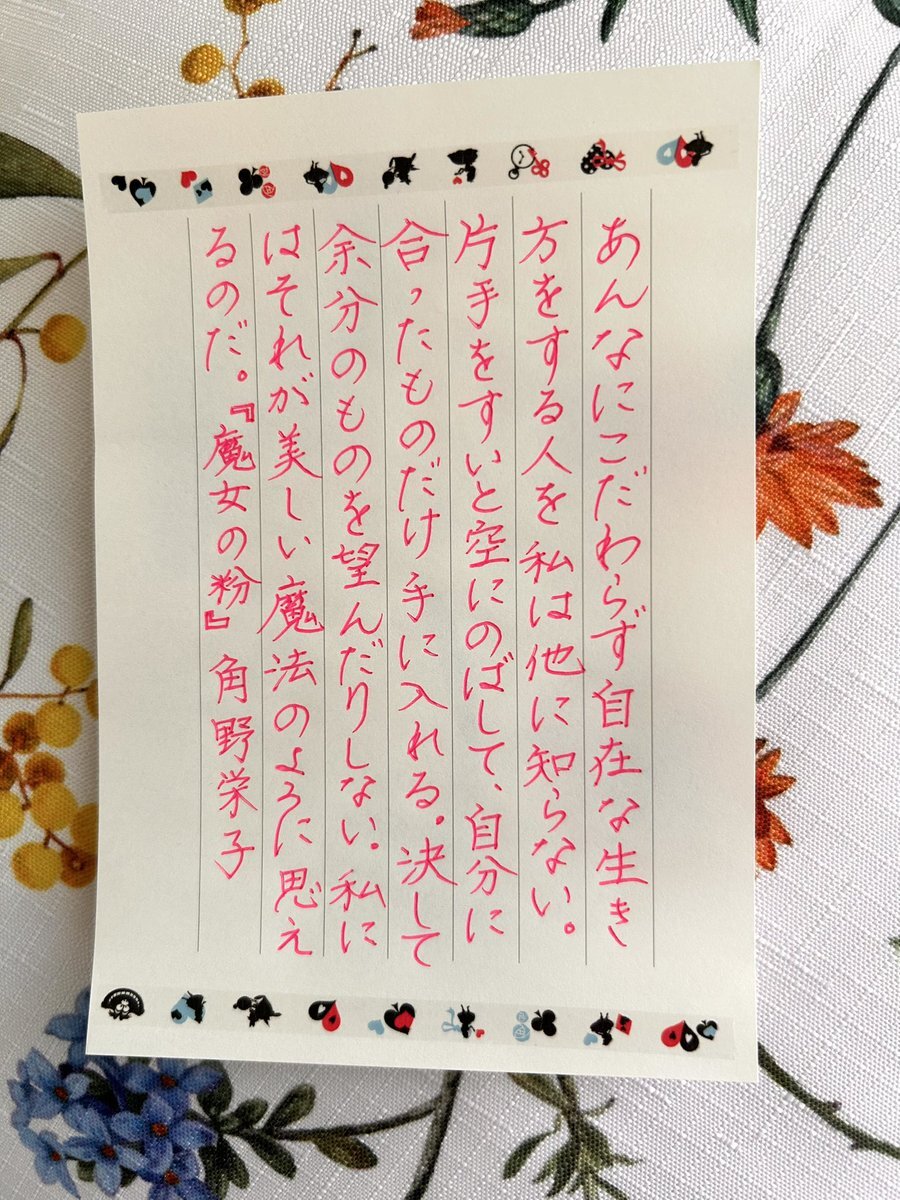 あんなにこだわらず自在な生き
方をする人を私は他に知らない。
片手をすいと空にのばして、自分に
合ったものだけ手に入れる。決して
余分のものを望んだりしない。私に
はそれが美しい魔法のように思え
るのだ。『魔女の粉』角野栄子